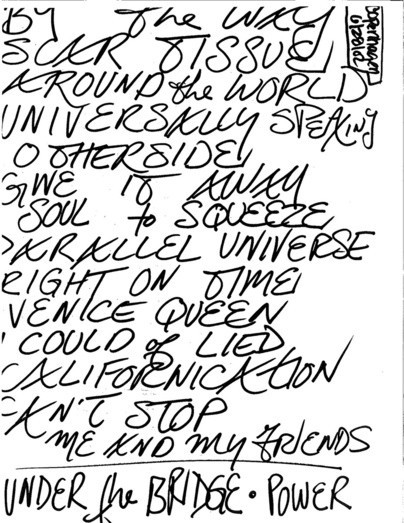 BY the WAY
SCAR TISSUE
AROUND the WORLD
UNIVERSALLY SPEAKING
OTHERSIDE
GIVE IT AWAY
SOUL to SQUEEZE
PARALLEL UNIVERSE
RIGHT ON TIME
VENICE QUEEN
I COULD of LIED
CALIFORNICATION
CAN'T STOP
ME AND MY FRIENDS
UNDER the BRIDGE • POWER